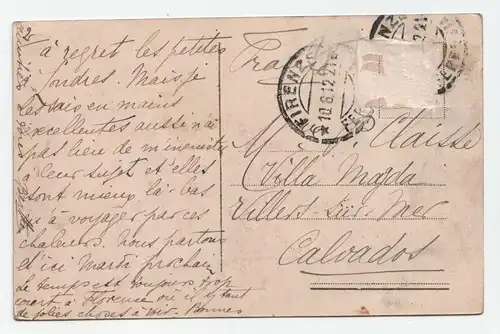 2
à regret les petites
fondres. Mais je
les sais en mains
excellentes aussi n'ai
pas lieu de m'inquiéter
à leur sujet et elles
sont mieux là-bas
qu'à voyager par ces
chaleurs. Nous partons
d'ici Mardi prochain
le temps est toujours trop
court à Florence où il y a tant
de jolies choses à voir. Bonnes
FIRENZE
10.6.12 21
M. Claisse
Villa Magda
Villers-sur-Mer
Calvados